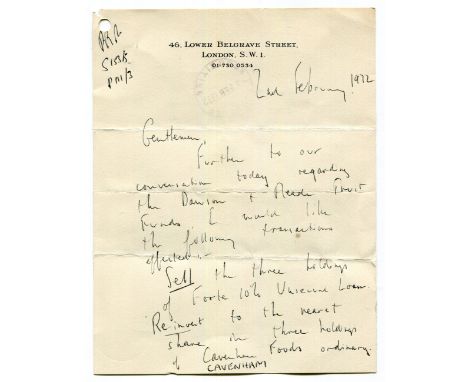 46, LOWER BELGRAVE STREET,
LONDON, S.W.1.
01-730 0534
2nd February 1972
Gentlemen,
Further to our
conversation today regarding
the Dawson & Reade Trust
Funds I would like
the following transactions
effected :-
Sell the three holdings
of Forte 10% Unsecure Loan.
Re-invest to the nearest
share in three holdings
of Cavenham Foods ordinary.
CAVENHAM